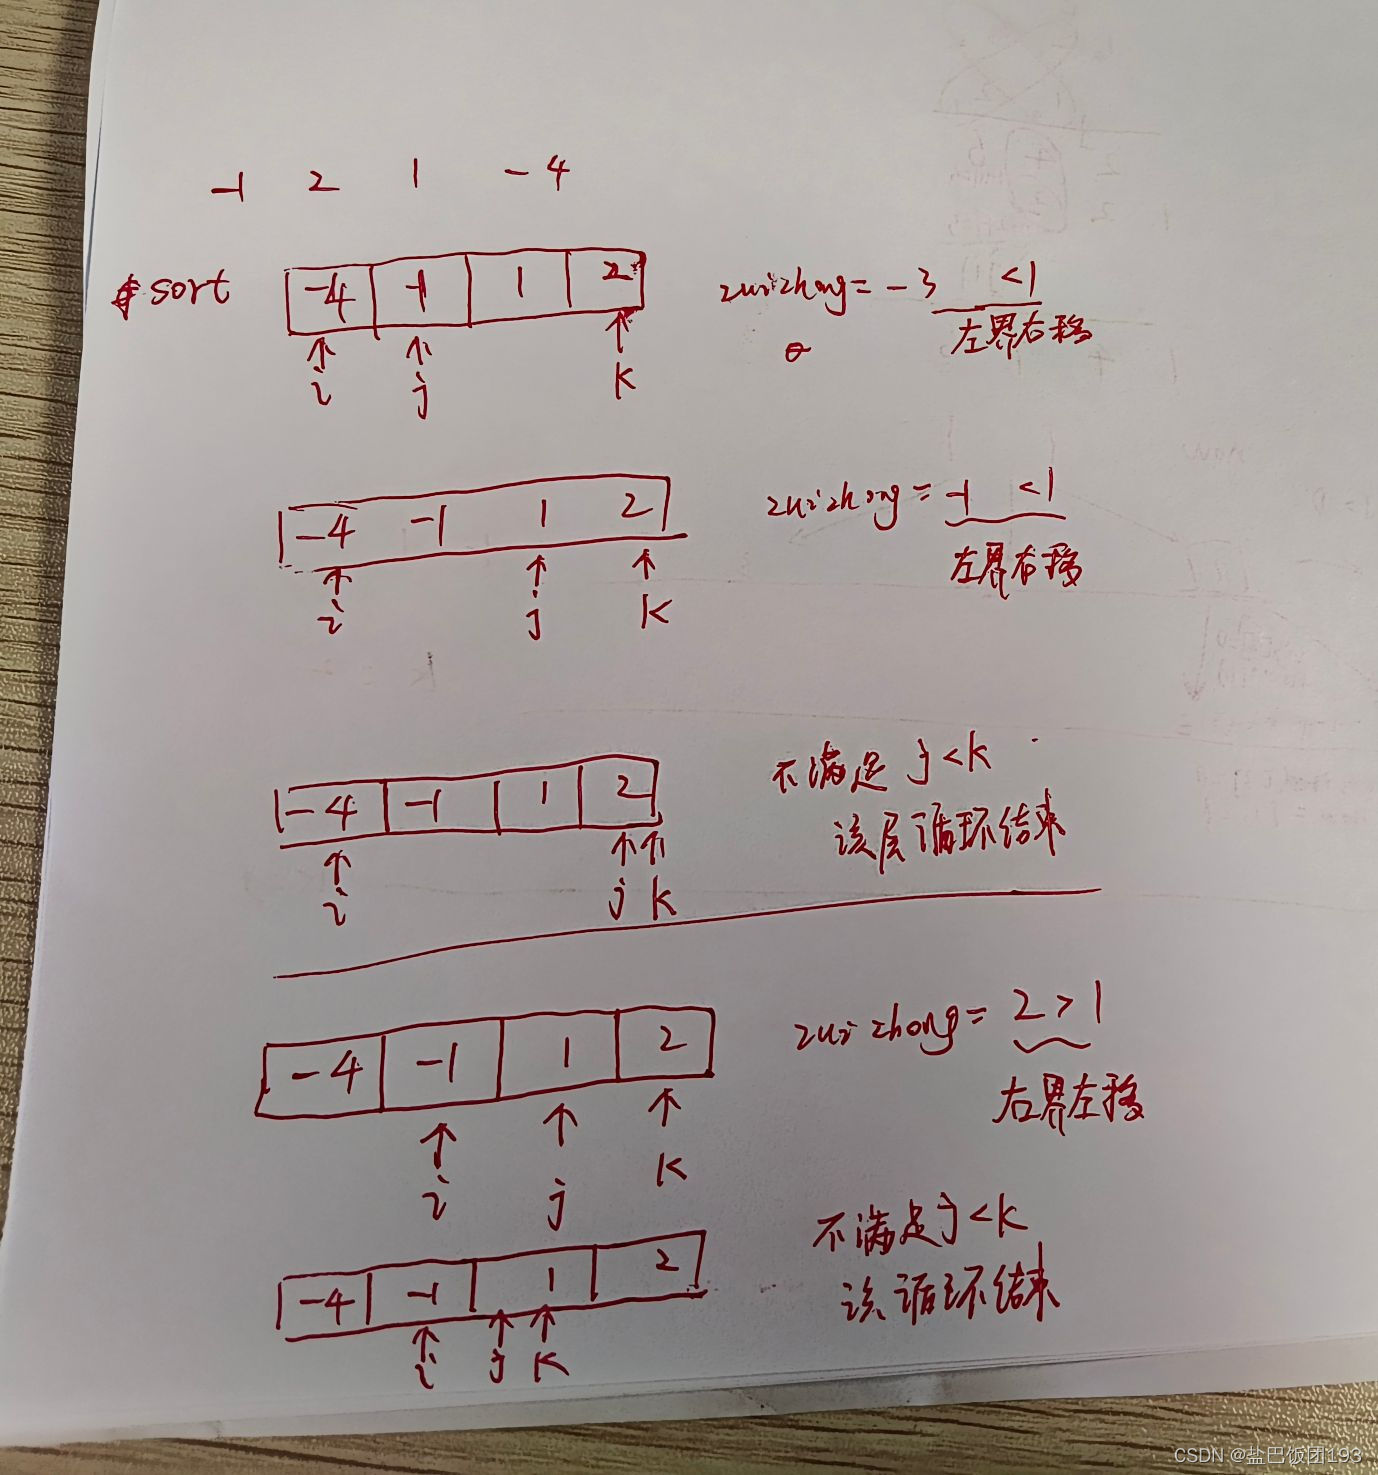 -1 2 1 -4
sort -4 -1 1 2 zuizhong = -3 <1
左界右移
i j k
-4 -1 1 2 zuizhong = -1 <1
左界右移
i j k
-4 -1 1 2 不满足 j<k
该层循环结束
i j k
-4 -1 1 2 zuizhong = 2 > 1
右界左移
i j k
不满足 j<k
-4 -1 1 2
该循环结束
i j k
CSDN @盐巴饭团193